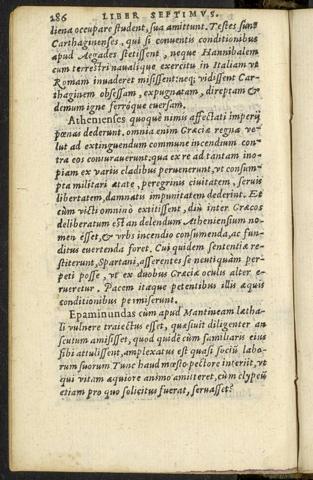 286 LIBER SEPTIMVS.
liena occupare student, sua amittunt. Testes sunt
Carthaginenses, qui si conuentis conditionibus
apud Aegades stetissent, neque Hannibalem
cum terrestri naualique exercitu in Italiam vt
Romam inuaderet misissent: neq; vidissent Car-
thaginem obsessam, expugnatam, direptam &
demum igne ferróque euersam.
Athenienses quoquè nimis affectati imperij
pœnas dederunt. omnia enim Græciæ regna ve-
lut ad extinguendum commune incendium con-
tra eos coniurauerunt: qua ex re ad tantam ino-
piam ex varijs cladibus peruenerunt, vt consum-
pta militari ætate, peregrinis ciuitatem, seruis
libertatem, damnatis impunitatem dederint. Et
cùm victi omninò extitissent, diù inter Græcos
deliberatum est an delendum Atheniensium no-
men esset, & vrbs incendio consumenda, ac fun-
ditus euertenda foret. Cui quidem sententiæ re-
stiterunt, Spartani, asserentes se neutiquàm per-
peti posse, vt ex duobus Græciæ oculis alter e-
rueretur. Pacem itaque petentibus illis æquis
conditionibus permiserunt.
Epaminundas cùm apud Mantineam lætha-
li vulnere traiectus esset, quæsiuit diligenter an
scutum amisisset, quod quidè cùm familiaris eius
sibi attulisset, amplexatus est quasi sociū labo-
rum suorum Tunc haud mœsto pectore interijt, vt
qui vitam æquiore animo amitteret, cùm clypeū
etiam pro quo solicitus fuerat, seruasset?